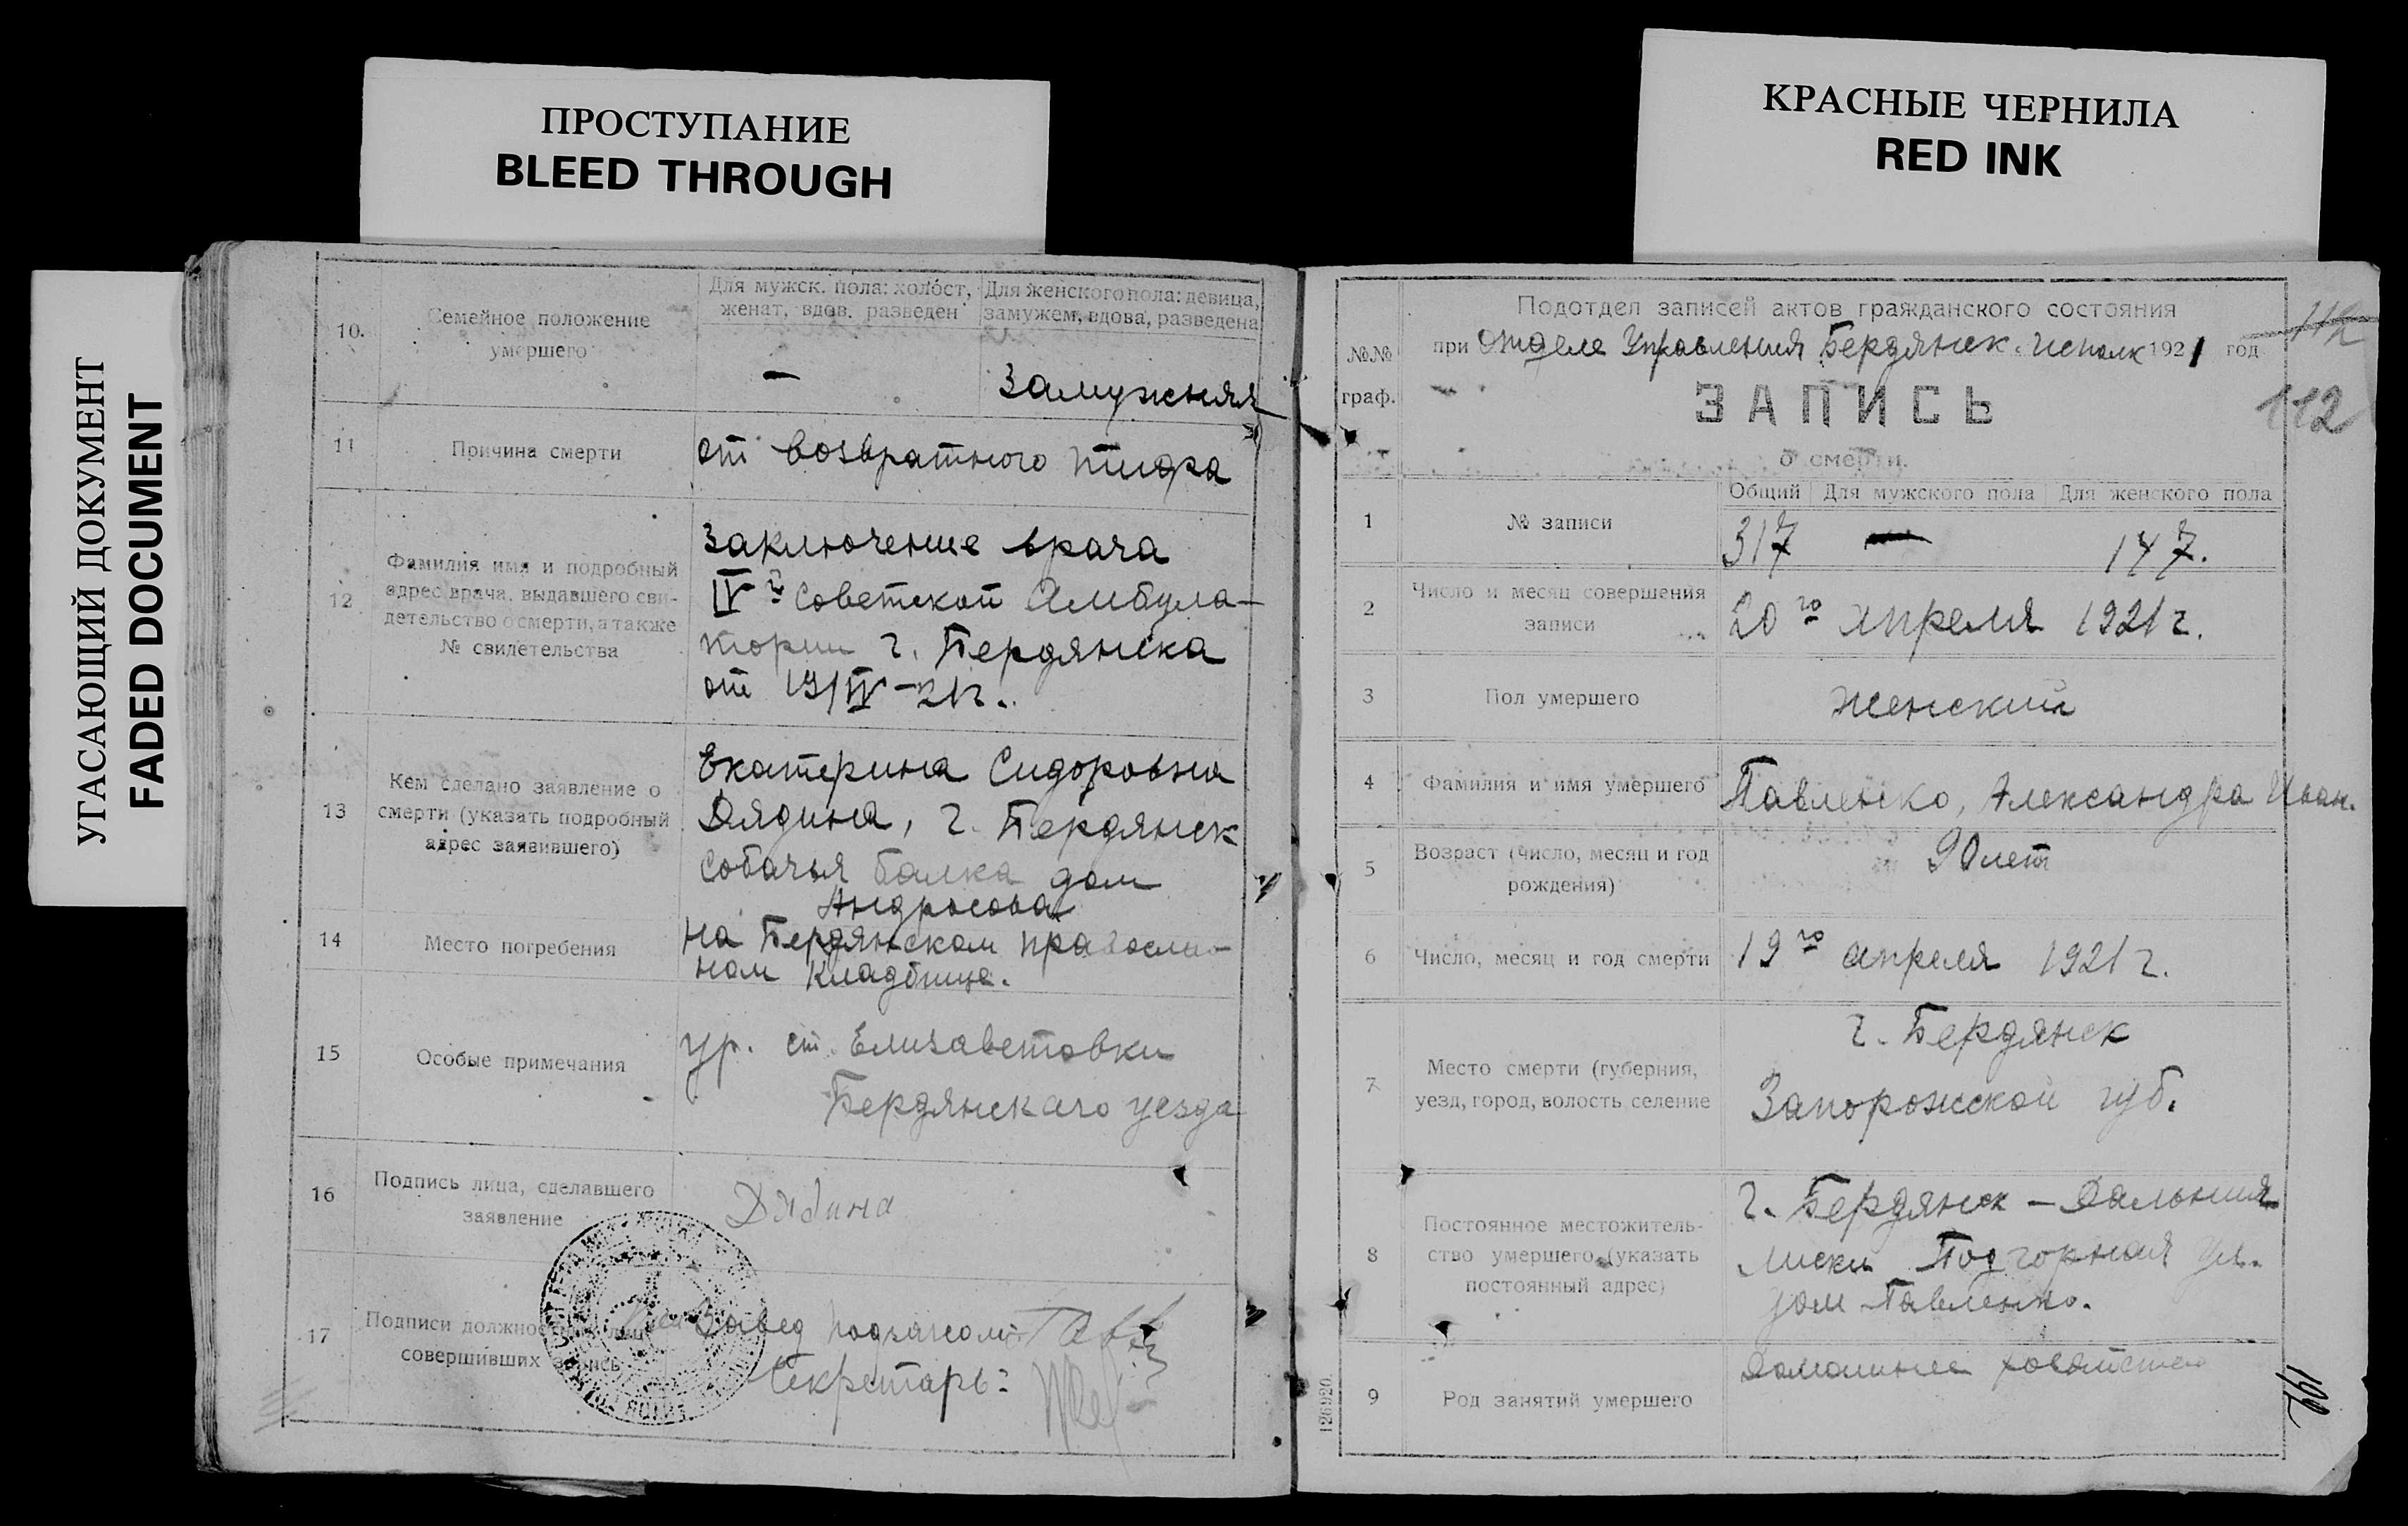 ПРОСТУПАНИЕ
BLEED THROUGH
КРАСНЫЕ ЧЕРНИЛА
RED INK
УГАСАЮЩИЙ ДОКУМЕНТ
FADED DOCUMENT
10.
Семейное положение
умершего
Для мужск. пола: холост,
женат, вдов. разведен
Для женского пола: девица,
замужем, вдова, разведена
—
Замужняя
11
Причина смерти
от возвратного тифа
12
Фамилия имя и подробный
адрес врача, выдавшего сви-
детельство о смерти, а также
№ свидетельства
Заключение врача
IV й Советской Амбула-
тории г. Бердянска
от 19/IV-21г.
13
Кем сделано заявление о
смерти (указать подробный
адрес заявившего)
Екатерина Сидоровна
Дядина, г. Бердянск
Собачья балка дом
Андросова
14
Место погребения
на Бердянском православ-
ном кладбище.
15
Особые примечания
ур. ст. Елизаветовки
Бердянскаго уезда
16
Подпись лица, сделавшего
заявление
Дядина
17
Подписи должностных лиц
совершивших запись
Завед подзагсом
Секретарь:
№№
граф.
Подотдел записей актов гражданского состояния
при Отделе Управления Бердянск. исполк 1921 год
112
112
ЗАПИСЬ
о смерти.
1
№ записи
Общий Для мужского пола Для женского пола
317 — 147.
2
Число и месяц совершения
записи
20го апреля 1921 г.
3
Пол умершего
женский
4
Фамилия и имя умершего
Павленко, Александра Иван.
5
Возраст (число, месяц и год
рождения)
90 лет
6
Число, месяц и год смерти
19го апреля 1921 г.
7
Место смерти (губерния,
уезд, город, волость, селение
г. Бердянск
Запорожской губ.
8
Постоянное местожитель-
ство умершего (указать
постоянный адрес)
г. Бердянск — Дальния
Лиски Подгорная ул.
дом Павленко.
9
Род занятий умершего
Домашнее хозяйство
126920.
192